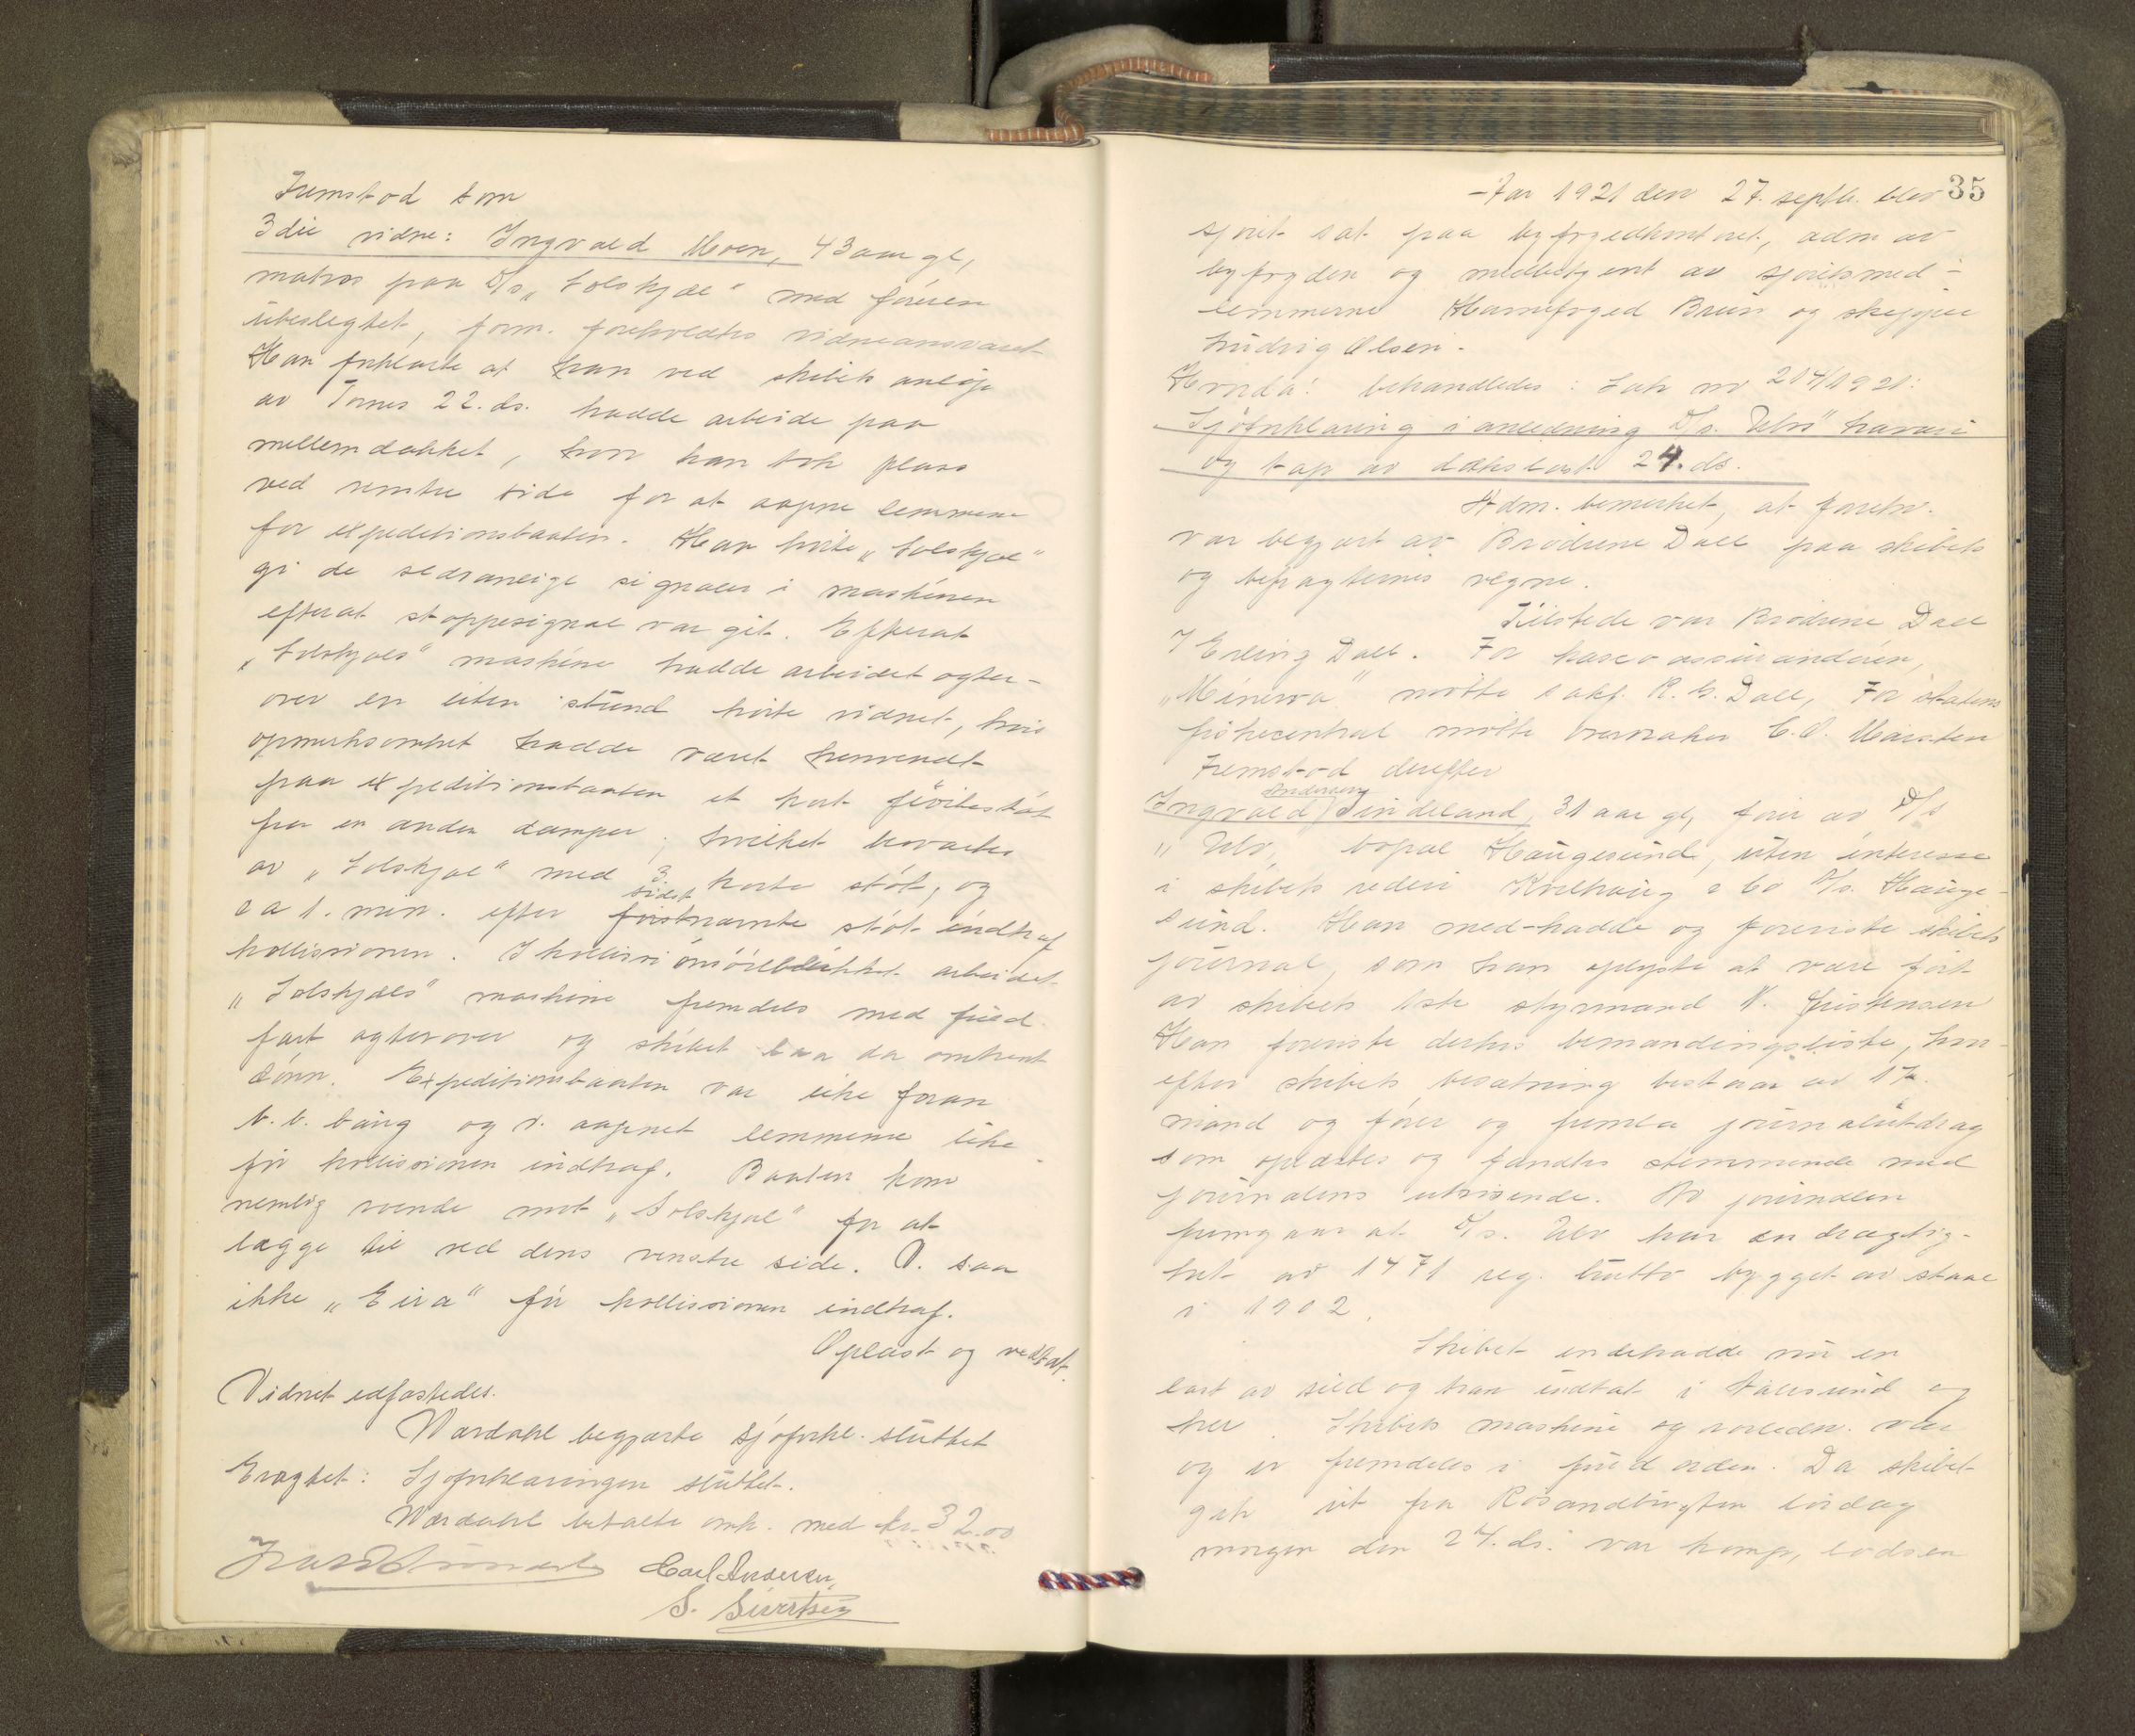 Fremstod som
3die vidne: Ingvald Moen, 43 aar gl,
matros paa D/s „Solskjæl" med føreren
ubeslegtet, form. foreholdtes vidneansvaret
Han forklarte at han ved skibets anløp
av Tornes 22. ds. hadde arbeide paa
mellemdækket, hvor han tok plass
ved venstre side for at aapne lemmene
for expeditionsbaaten. Han hørte „Solskjæl"
gi de sedvanlige signaler i maskinen
efterat stoppesignal var git. Efterat
„Solskjæls" maskine hadde arbeidet agter-
over en liten stund hørte vidnet, hvis
opmerksomhet hadde været henvendt
paa expeditionsbaaten et kort fløitestøt
fra en anden damper, hvilket besvartes
av „Solskjæl" med 3 korte støt, og
ca 1. min. efter sidst førstnævnte støt indtraf
kollissionen. I kollissionsøieblikket arbeidet
„Solskjæls" maskine fremdeles med fuld
fart agterover og skibet laa da omtrent
dønn. Expeditionsbaaten var like foran
b.b. baug og v. aapnet lemmene like
før kollissionen indtraf. Baaten kom
nemlig roende mot „Solskjæl" for at
lægge til ved dens venstre side. V. saa
ikke „Eira" før kollissionen indtraf.
Oplæst og vedtat.
Vidnet edfæstedes.
Wærdahl begjærte sjøforkl. sluttet
Eragtet: Sjøforklaringen sluttet.
Wærdahl betalte omk. med kr. 32.00
Carl Andersen
S. Sivertsen
35
-Aar 1921 den 27. septbr. blev
sjøret sat paa byfogedkontoret, adm av
byfogden og medbetjent av sjøretsmed-
lemmerne Havnefoged Brun og skipper
Ludvig Olsen.
Hvorda: behandledes: Sak nr 214/1921:
Sjøforklaring i anledning D/s. Ulv's havari
og tap av dækslast 24. ds.
Adm. bemerket, at foretn.
var begjært av Brødrene Dall paa skibets
og befragternes vegne.
Tilstede var Brødrene Dall
v/ Erling Dall. For kascoassurandøren,
„Minerva" møtte sakf. R. G. Dall, For statens
fiskecentral møtte overvraker C.O.
Fremstod derefter
Andersen
Ingvald Tindeland, 31 aar gl, fører av D/s
„Ulv, bopæl Haugesund, uten interesse
i skibets rederi Kolhaug & Co A/s. Hauge-
sund. Han med-hadde og foreviste skibets
journal, som han oplyste at være ført
av skibets 1ste styrmand N.
Han foreviste derhos bemandingsliste, hvor-
efter skibets besætning bestaar av 17
mand og fører og fremla journalutdrag
som oplæstes og fandtes stemmende med
journalens utvisende. Av journalen
fremgaar at D/s. Ulv har en drægtig-
het av 1471 reg. brutto bygget av staal
i 1902.
Skibet indehadde nu en
last av sild og tran indtat i Aalesund og
her. Skibets maskine og roreledn. var
og er fremdeles i fuld orden. Da skibet
gik ut fra Rosandbugten lørdag
morgen den 24. ds. var komp, lodsen